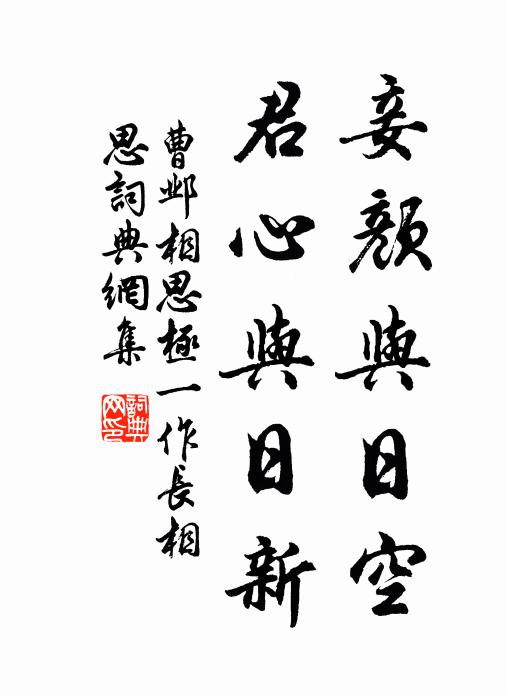 妾顏與日空
君心與日新
曹邺相思極一作長相
思詞典網集
詞典网印